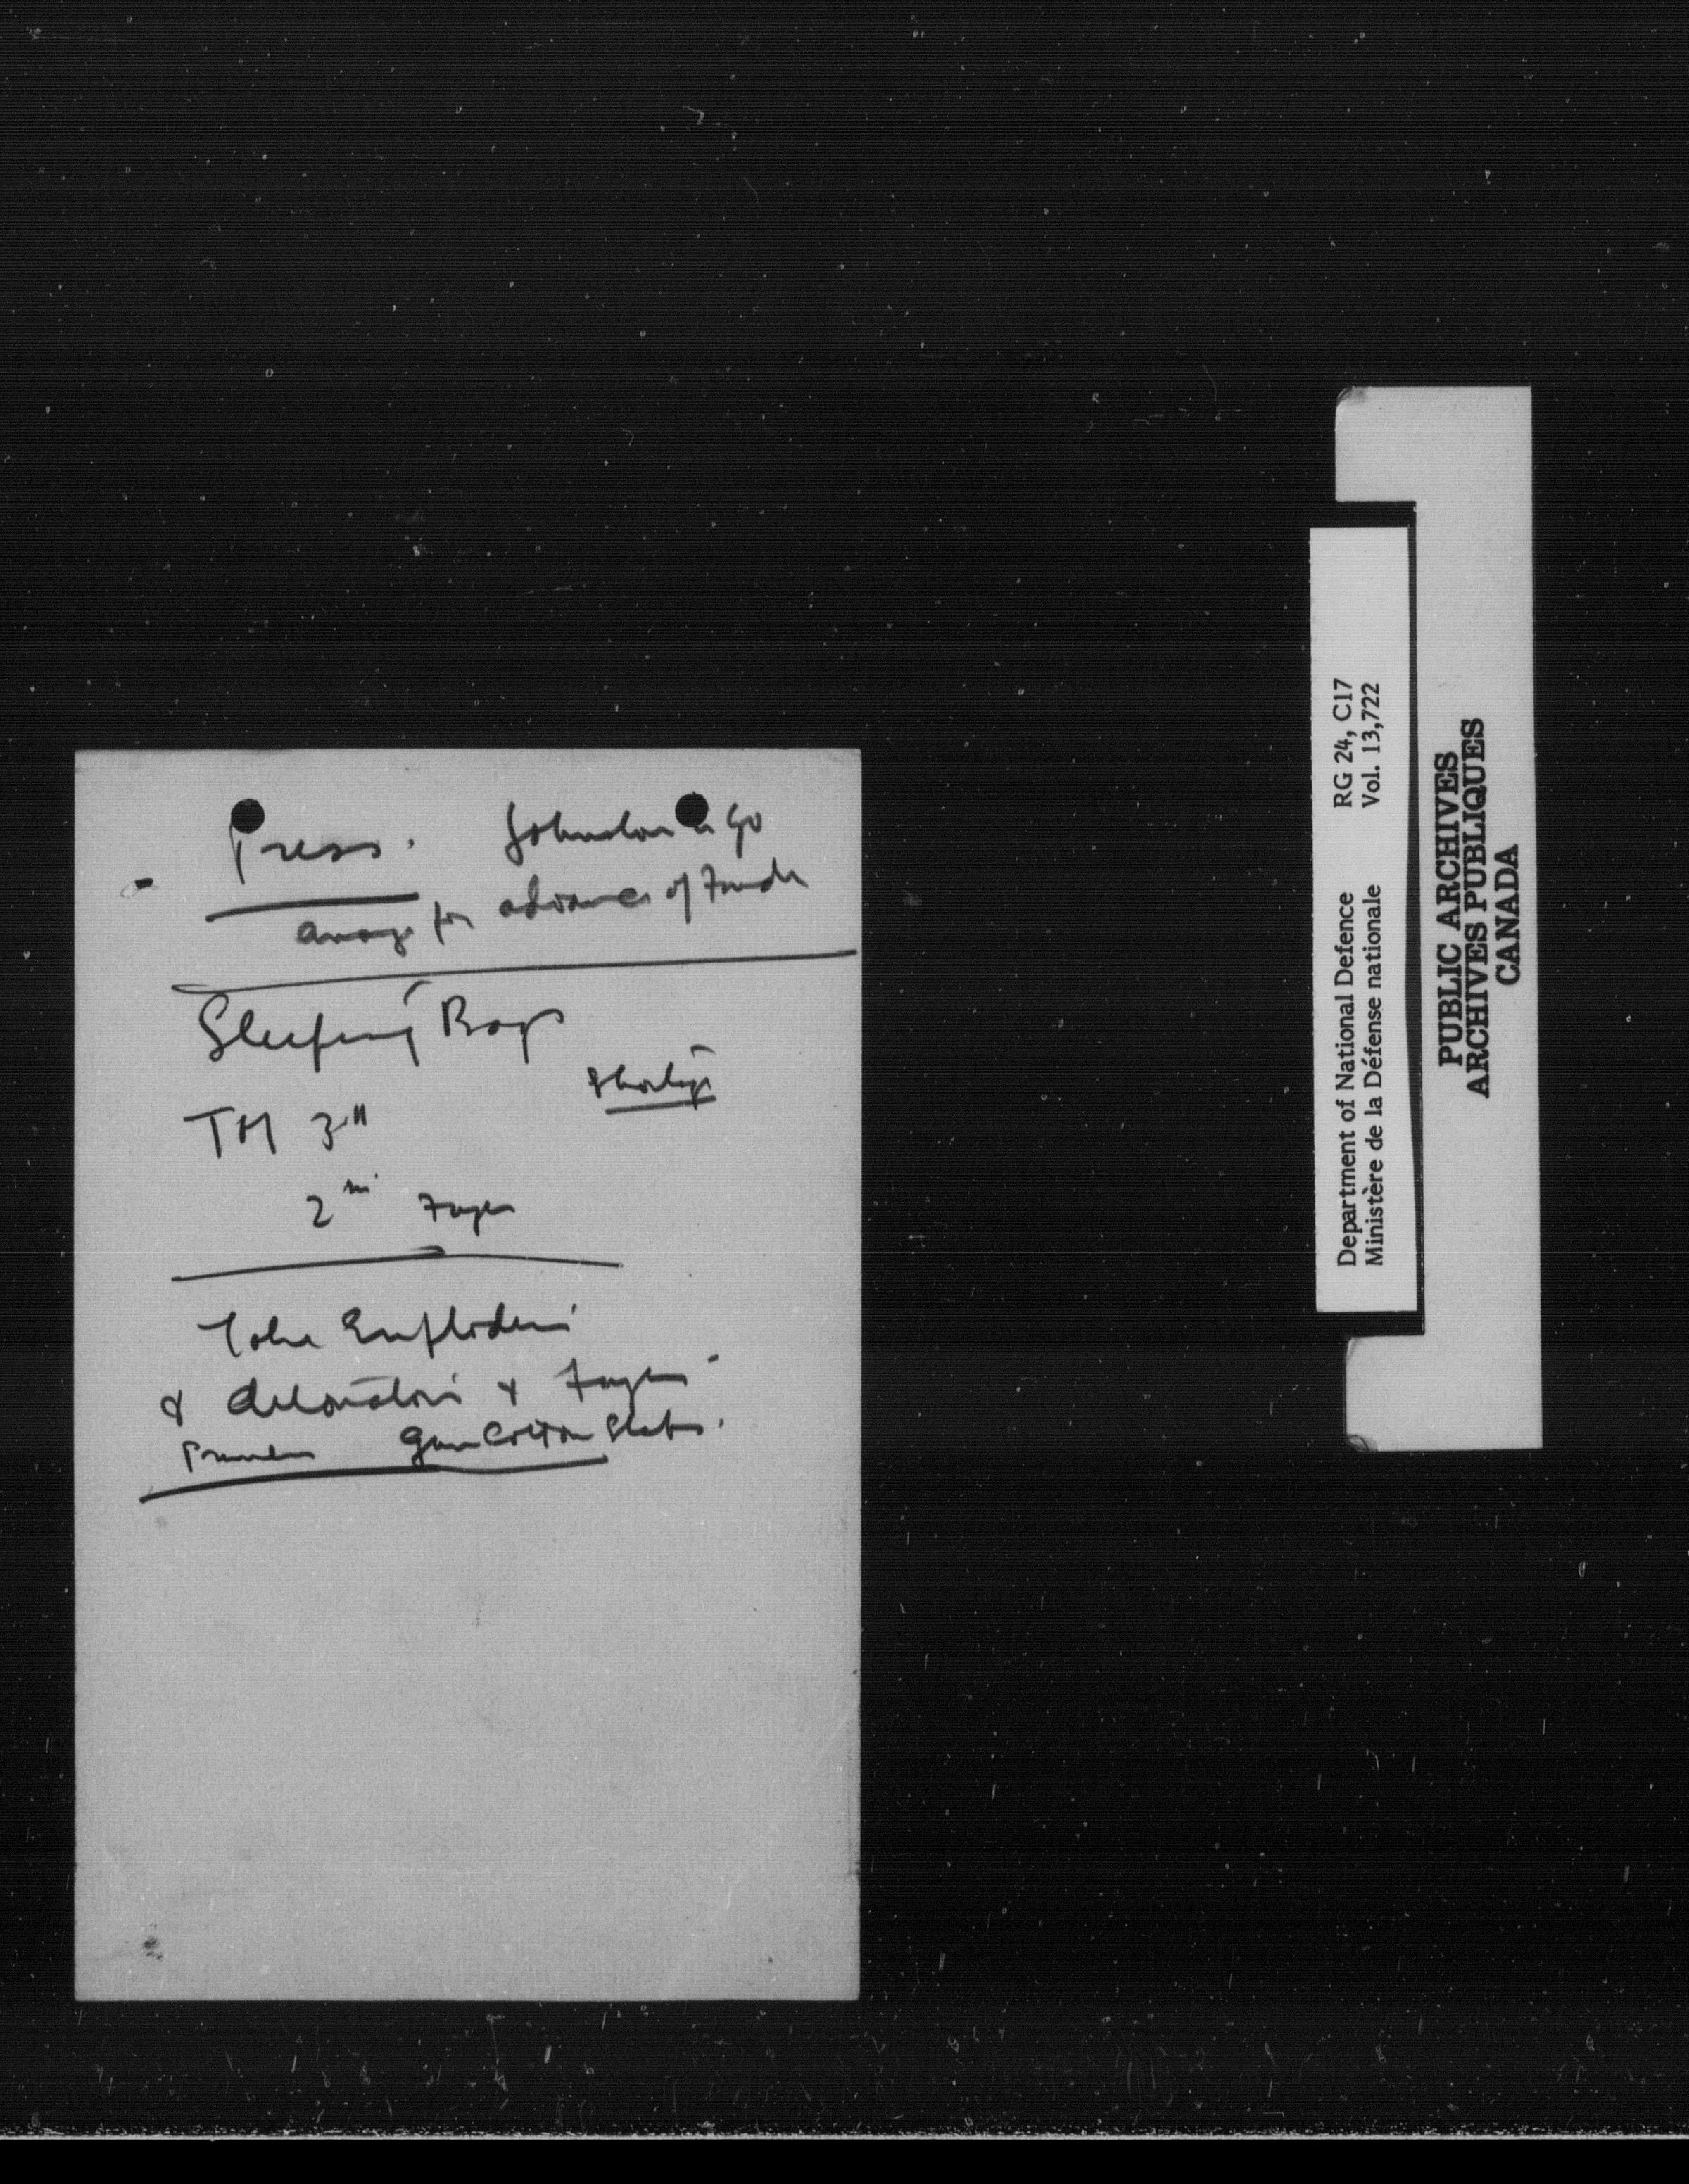 Press. Johnston to go
arrange for advance of funds
Sleeping Bags
Shortage
TM 3"
2" Fuzes
Take Exploders
& detonators & Fuzes
Primers Gun Cotton Slabs.
Department of National Defence RG 24, C17
Ministère de la Défense nationale Vol. 13,722
PUBLIC ARCHIVES
ARCHIVES PUBLIQUES
CANADA